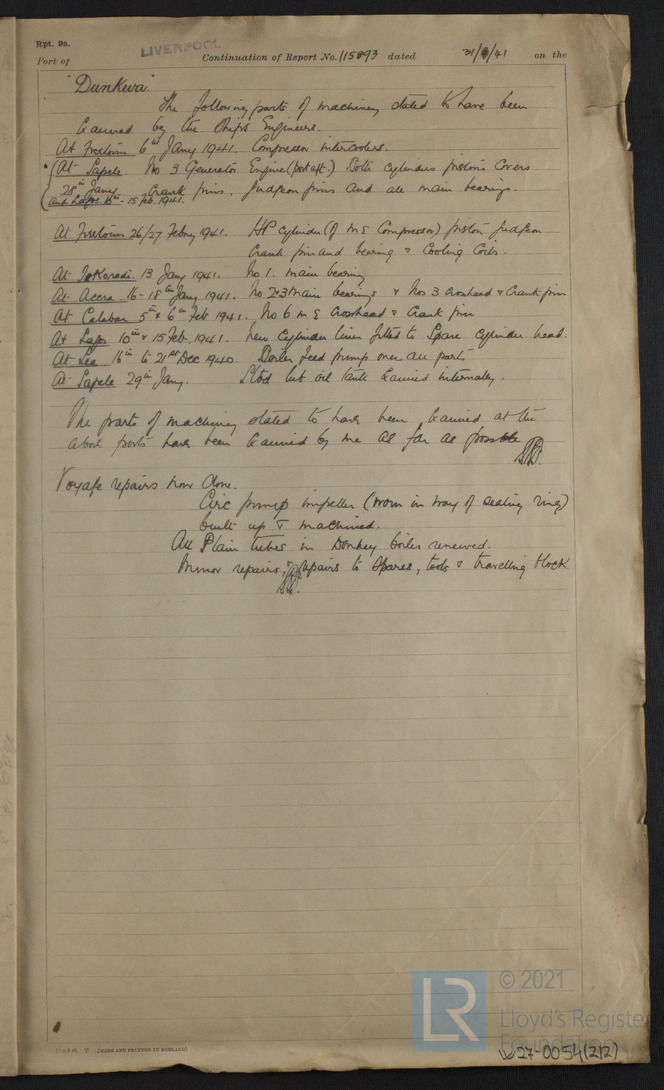 Rpt. 9a.
Port of LIVERPOOL Continuation of Report No. 115893 dated 31/ /41 on the
"Dunkwa"
The following parts of machinery stated to have been
Examined by the Ships Engineers.
At Freetown 6th Jany 1941. Compressor intercoolers.
At Sapele. No 3 Generator Engine (port aft.) Both cylinders pistons covers
28th Jany Crank pins, Gudgeon pins and all main bearings.
and Lagos - 15 Feb. 1941.
At Freetown 26/27 Febry 1941. HP cylinder (of M E Compressor) piston, Gudgeon
Crank pin and bearing & Cooling Coils.
At Takoradi. 13 Jany 1941. No 1. main bearing
At Accra 16-18th Jany 1941. No 2 & 3 main bearings & Nos 3 Crosshead & Crank pin
At Calabar 5th & 6th Feb 1941. No 6 M E Crosshead & Crank pin
At Lagos 10th & 15 Feb. 1941. New Cylinder liner fitted to Spare cylinder head.
At Sea 16th to 21st Dec 1940. Boiler feed pump over all parts
At Sapele 29th Jany. Stbd lub oil tank Examined internally.
The parts of machinery stated to have been Examined at the
above ports have been Examined by me as far as possible
Voyage repairs now done.
Circ pump impeller (worn in way of sealing ring)
built up & machined.
All Plain tubes in Donkey boiler renewed.
Minor repairs, & repairs to Spares, tools & travelling block
(MADE AND PRINTED IN ENGLAND)
LR
© 2021
Lloyd's Register
Foundation
W27-0054(2/2)